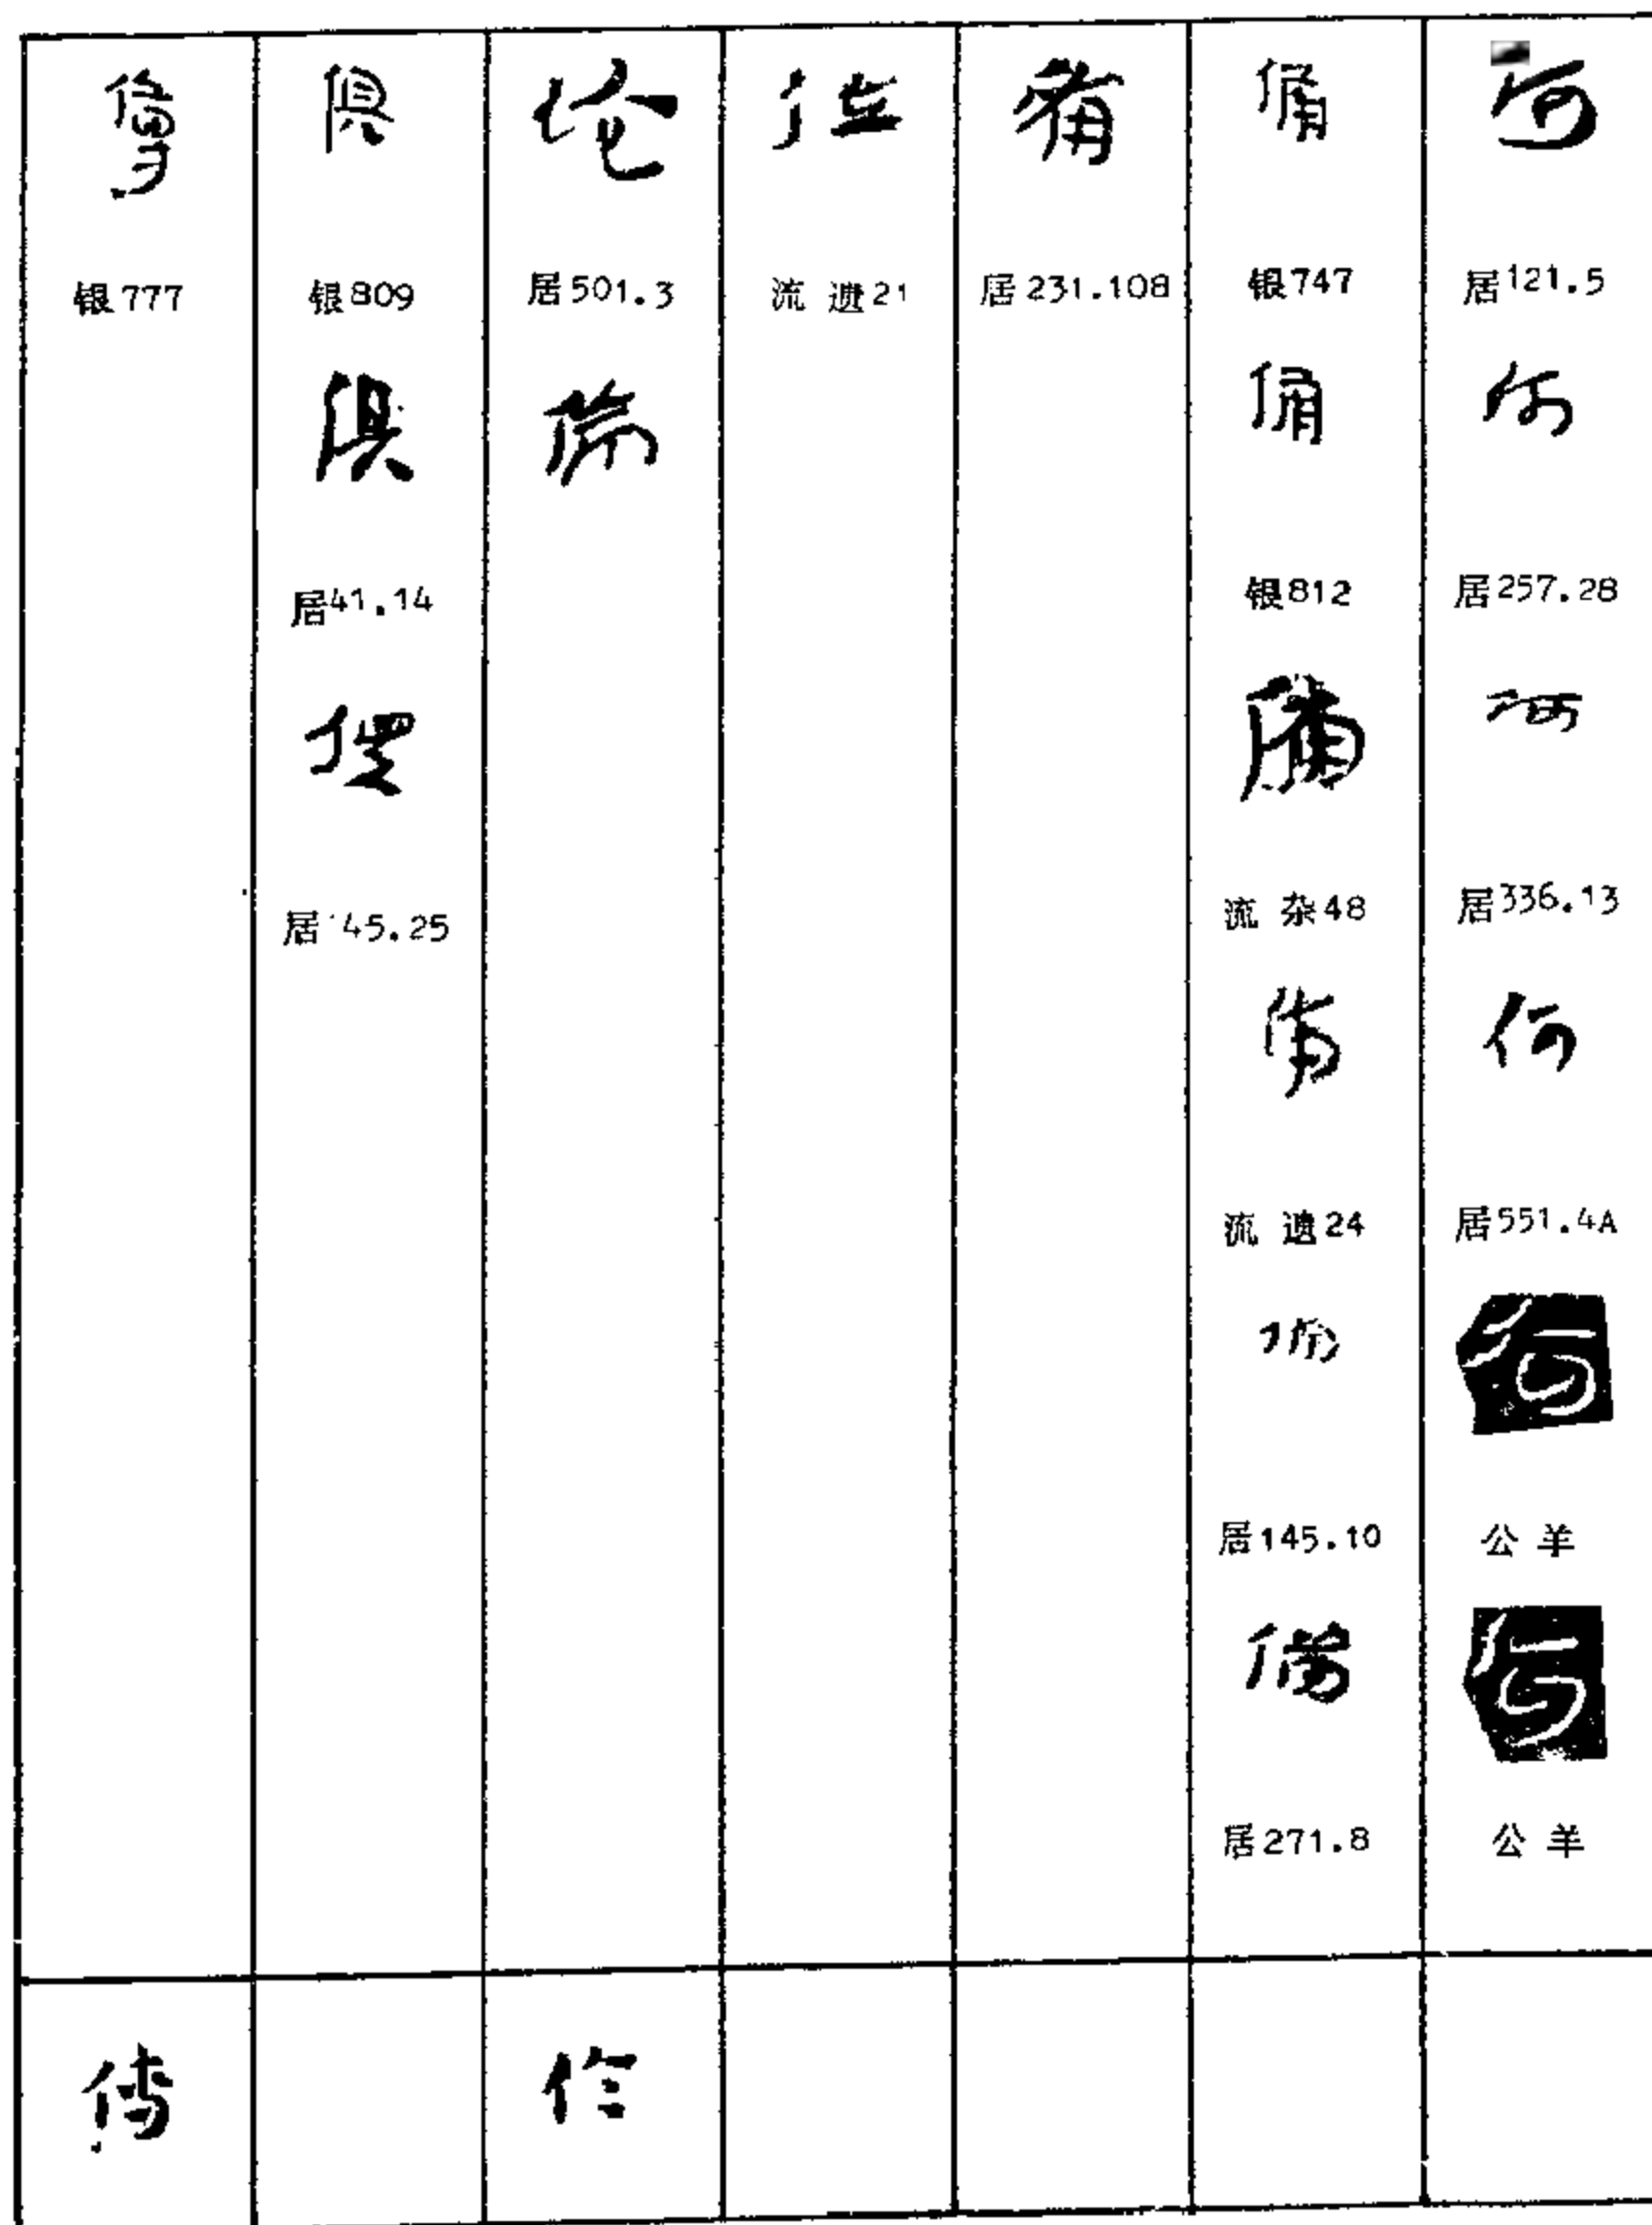 何
居121.5
何
居257.28
何
居336.13
何
居551.4A
何
公羊
何
公羊
備
银747
備
银812
備
流 杂48
備
流 遗24
居145.10
備
居271.8
居231.108
位
流 遗21
居501.3
倫
俱
银809
俱
居41.14
俱
居145.25
傅
银777
傅